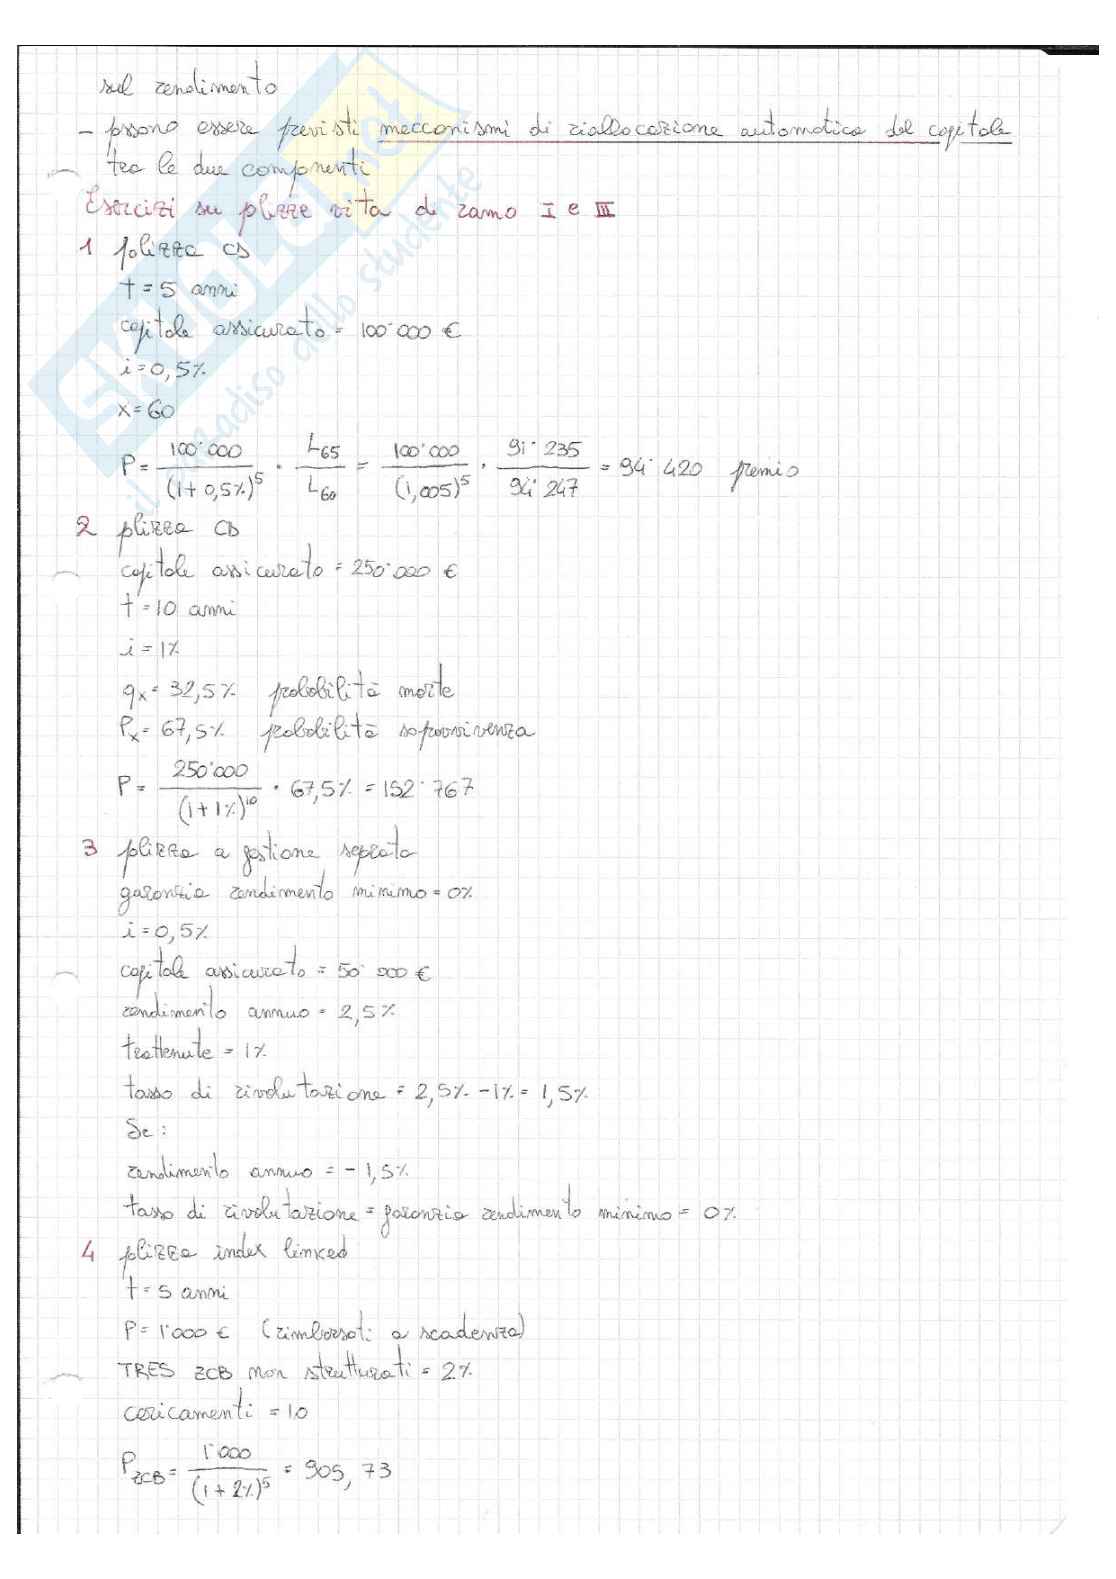 sul rendimento
- possono essere previsti meccanismi di riallocazione automatica del capitale
tra le due componenti
Esercizi su polizze vita di ramo I e III
1 polizza CD
t = 5 anni
capitale assicurato = 100'000 €
i = 0,5%
x = 60
P = 100'000 / (1 + 0,5%)^5 · L65 / L60 = 100'000 / (1,005)^5 · 91'235 / 94'247 = 94'420 premio
2 polizza CD
capitale assicurato = 250'000 €
t = 10 anni
i = 1%
qx = 32,5% probabilità morte
Px = 67,5% probabilità sopravvivenza
P = 250'000 / (1 + 1%)^10 · 67,5% = 152'767
3 polizza a gestione separata
garanzia rendimento minimo = 0%
i = 0,5%
capitale assicurato = 50'000 €
rendimento annuo = 2,5%
trattenute = 1%
tasso di rivalutazione = 2,5% - 1% = 1,5%
Se:
rendimento annuo = - 1,5%
tasso di rivalutazione = garanzia rendimento minimo = 0%
4 polizza index linked
t = 5 anni
P = 1'000 € (rimborsati a scadenza)
TRES ZCB non strutturati = 2%
caricamenti = 10
PZCB = 1'000 / (1 + 2%)^5 = 905,73
SKUOLA.net
il paradiso dello studente